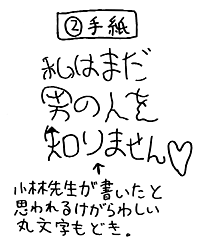 ②手紙
私はまだ
男の人を
知りません♡
小林先生が書いたと
思われるけがらわしい
丸文字もどき。